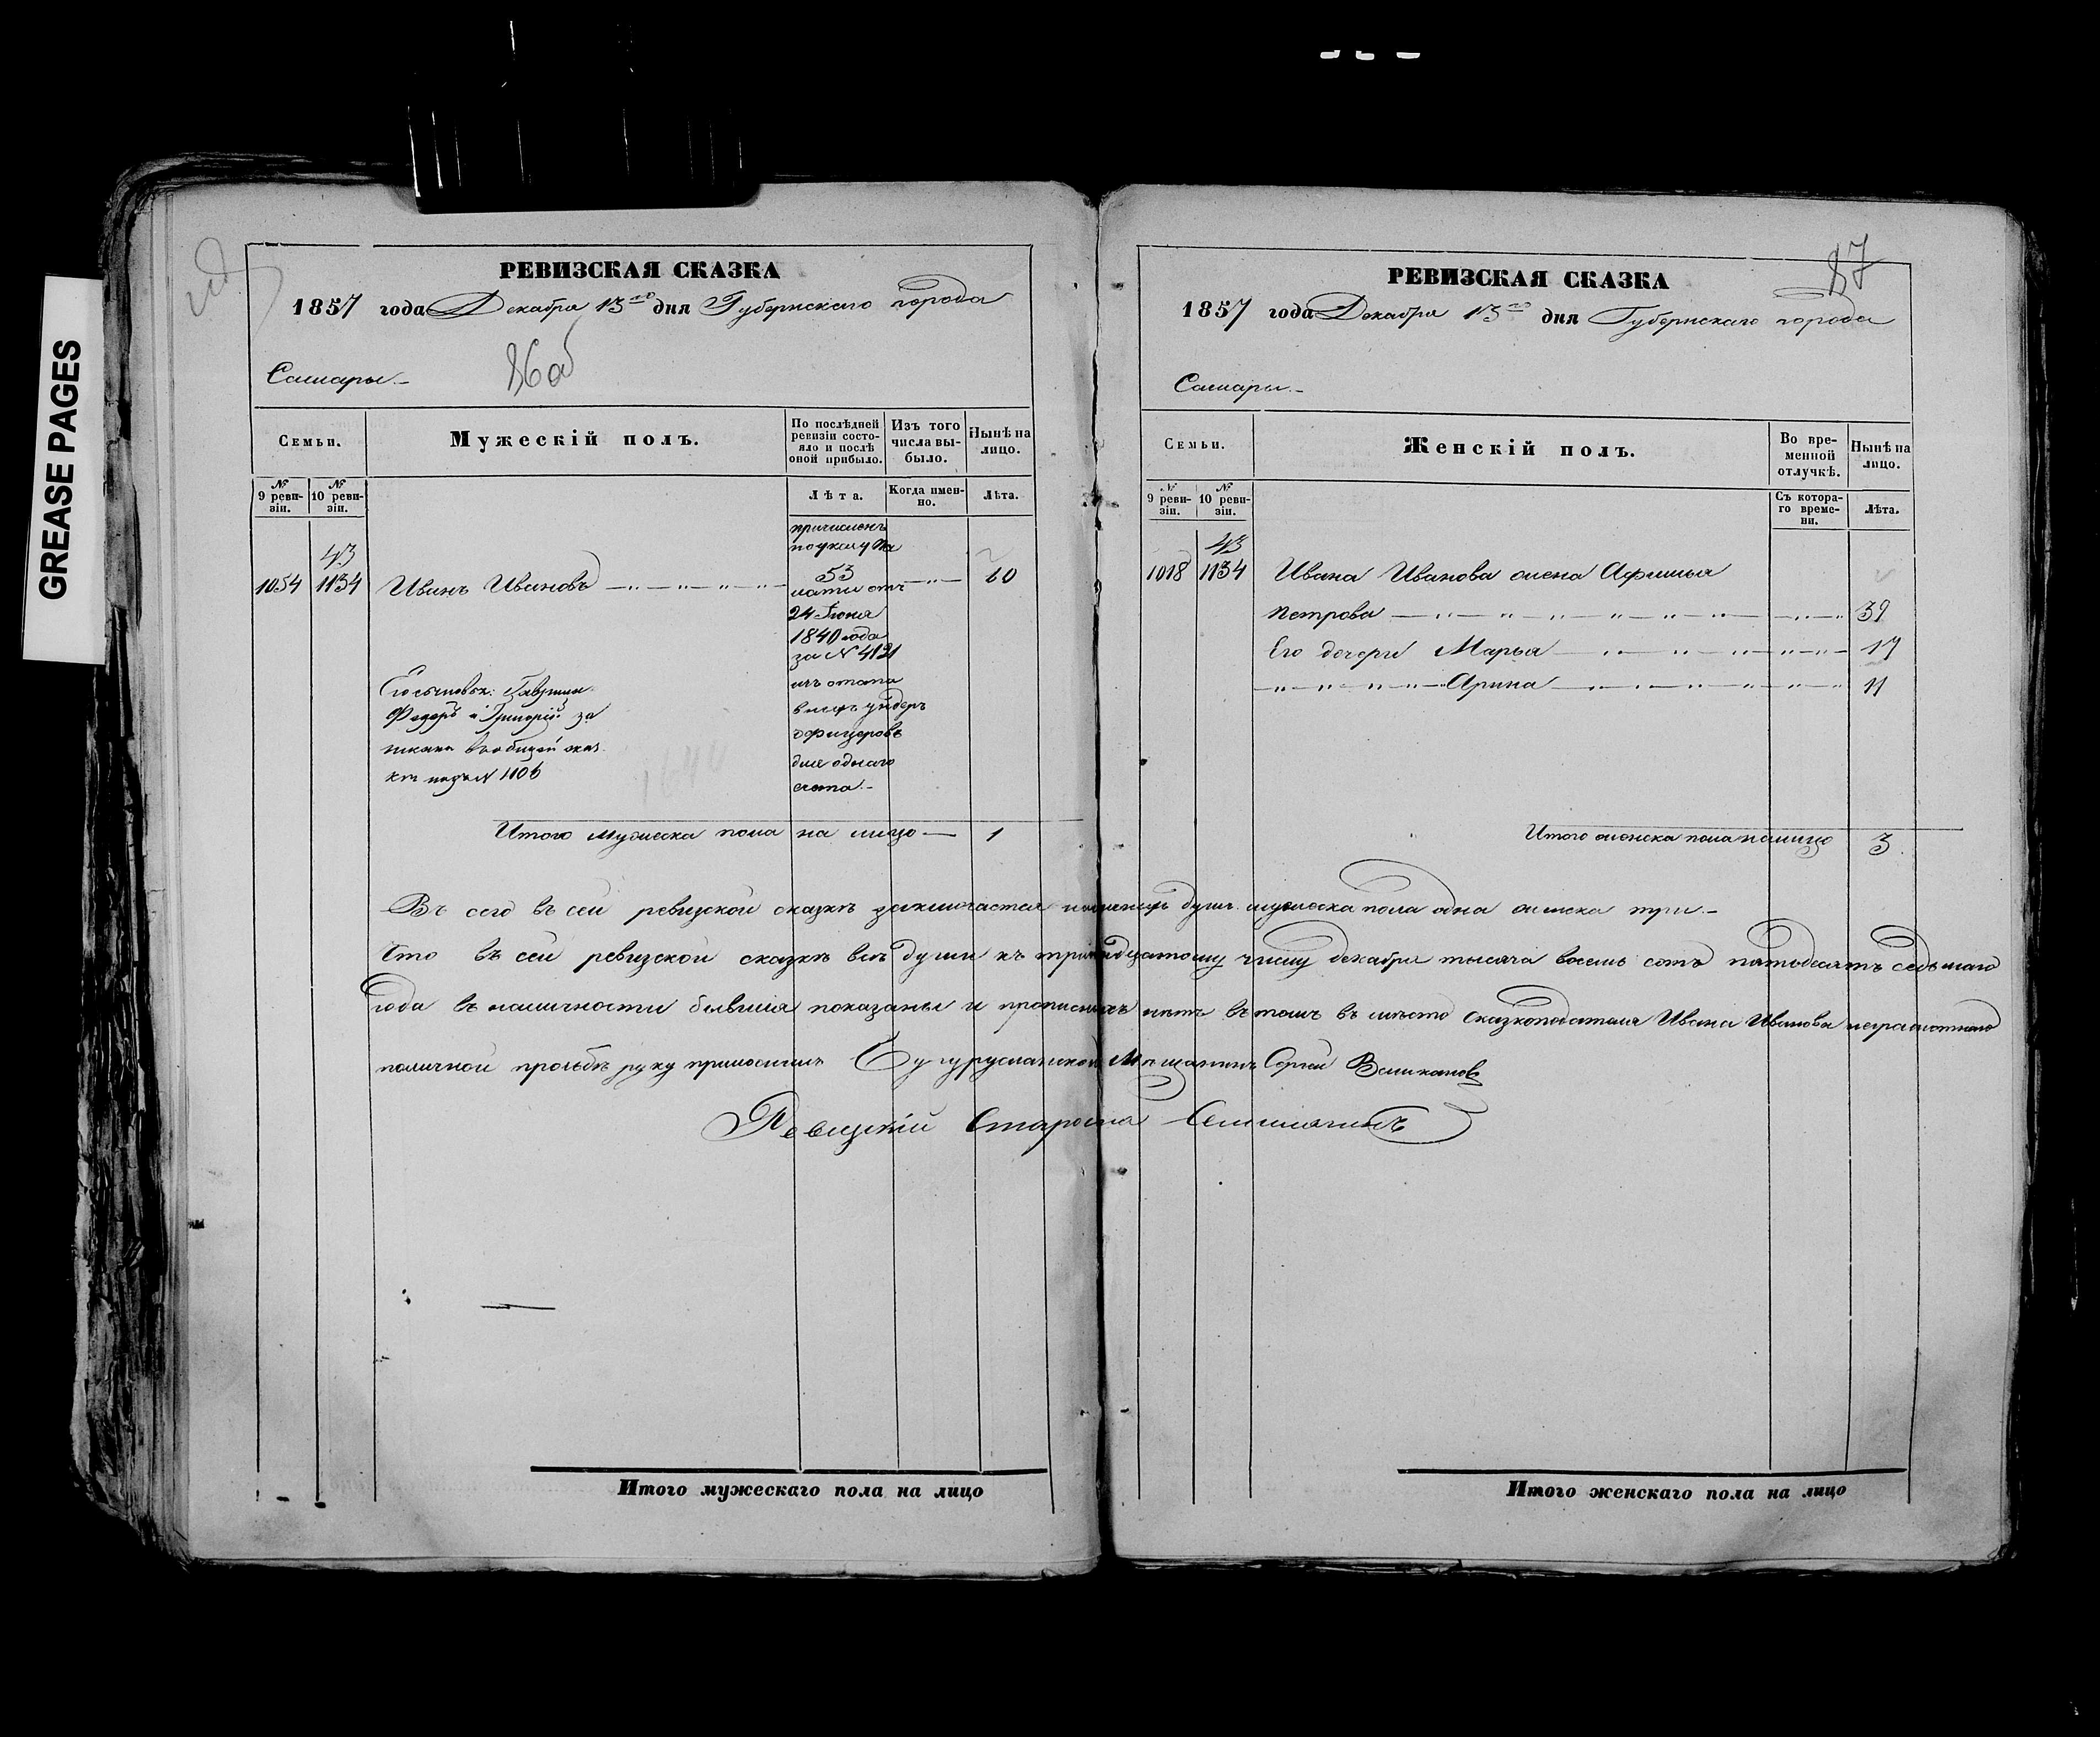 GREASE PAGES
РЕВИЗСКАЯ СКАЗКА
1857 года Декабря 13го дня Губернскаго города
86об
Самары.-
Семьи.
Мужескій полъ.
По послѣдней ревизіи состо-
яло и послѣ
оной прибыло.
Изъ того
числа вы-
было.
Нынѣ на
лицо.
№
9 реви-
зіи.
№
10 реви-
зіи.
Лѣта.
Когда имен-
но.
Лѣта.
причисленъ
по указу
43
1054 1134 Иванъ Ивановъ 53 60
латы отъ
24 Іюня
1840 года
за № 4121
изъ отста
вныхъ ундеръ
офицеровъ
для однаго
счета.-
Его сыновья:
Федоръ и Григорій за
писаны въ общей сказ
кѣ подъ № 1106
Итого мужеска пола на лицо — 1
РЕВИЗСКАЯ СКАЗКА
87
1857 года Декабря 13го дня Губернскаго города
Самары.-
Семьи.
Женскій полъ.
Во вре-
менной
отлучкѣ.
Нынѣ на
лицо.
№
9 реви-
зіи.
№
10 реви-
зіи.
Съ котора-
го време-
ни.
Лѣта.
43
1018 1134 Ивана Иванова жена Афимья
Петрова 39
Его дочери Марья 17
Арина 11
Итого женска пола налицо 3
Въ сего въ сей ревизской сказкѣ заключается наличныхъ душъ мужеска пола одна женска три.-
Что въ сей ревизской сказкѣ всѣ души къ тринадцатому числу декабря тысяча восемь сотъ пятьдесятъ седьмаго
года въ наличности бывшія показаны и прописныхъ нѣтъ въ томъ въ мѣсто сказкоподателя Ивана Иванова неграмотнаго
поличной прозьбѣ руку приложилъ Бугурусланской Мѣщанинъ Сергей Великановъ
Ревизскій Староста
Итого мужескаго пола на лицо
Итого женскаго пола на лицо